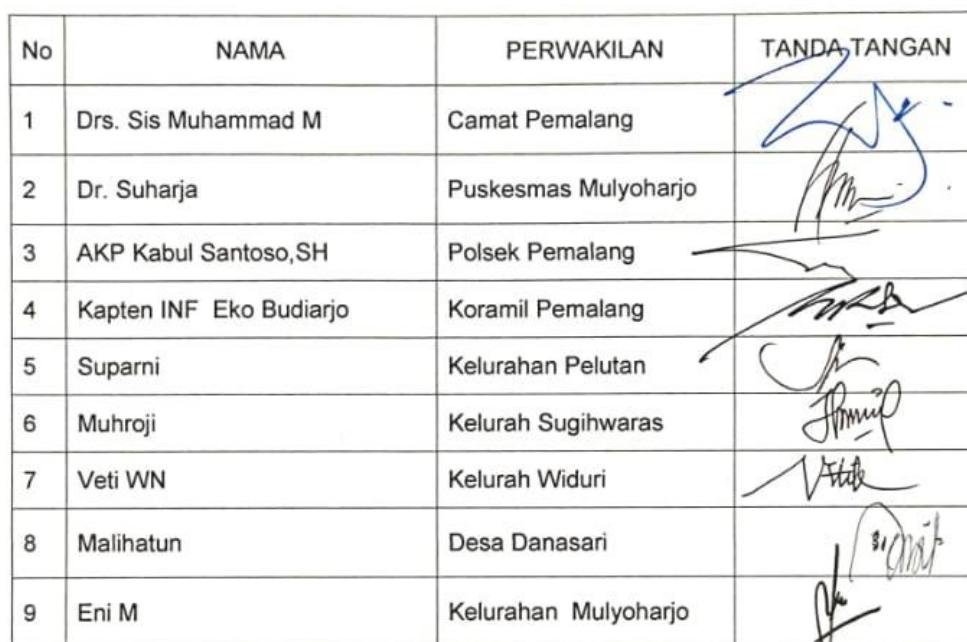 No NAMA PERWAKILAN TANDA TANGAN
1 Drs. Sis Muhammad M Camat Pemalang
2 Dr. Suharja Puskesmas Mulyoharjo
3 AKP Kabul Santoso,SH Polsek Pemalang
4 Kapten INF Eko Budiarjo Koramil Pemalang
5 Suparni Kelurahan Pelutan
6 Muhroji Kelurah Sugihwaras
7 Veti WN Kelurah Widuri
8 Malihatun Desa Danasari
9 Eni M Kelurahan Mulyoharjo